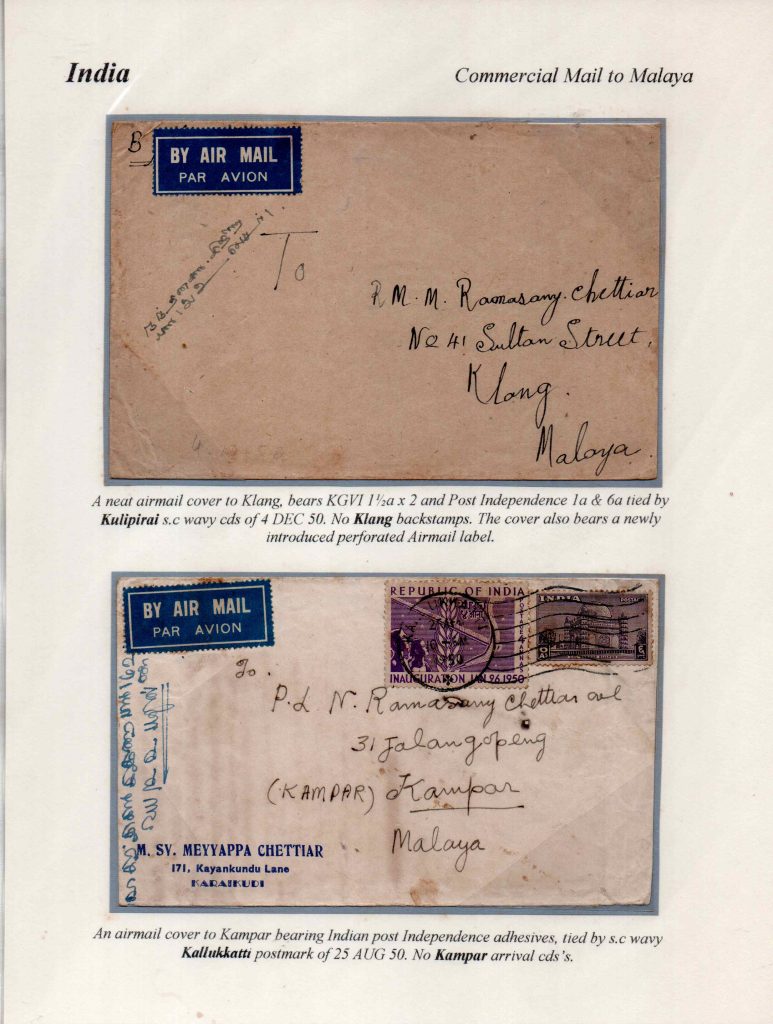 India
Commercial Mail to Malaya
B
BY AIR MAIL
PAR AVION
To
R M. M. Ramasany. Chettiar
No 41 Sultan Street,
Klang.
Malaya.
A neat airmail cover to Klang, bears KGVI 1½a x 2 and Post Independence 1a & 6a tied by
Kulipirai s.c wavy cds of 4 DEC 50. No Klang backstamps. The cover also bears a newly
introduced perforated Airmail label.
BY AIR MAIL
PAR AVION
REPUBLIC OF INDIA
INAUGURATION JAN. 26, 1950
INDIA
POSTAGE
To.
P. L. N. Ramasany Chettiar avl
31 Jalangopeng
(KAMPAR) Kampar
Malaya
M. SV. MEYYAPPA CHETTIAR
171, Kayankundu Lane
KARAIKUDI
An airmail cover to Kampar bearing Indian post Independence adhesives, tied by s.c wavy
Kallukkatti postmark of 25 AUG 50. No Kampar arrival cds's.